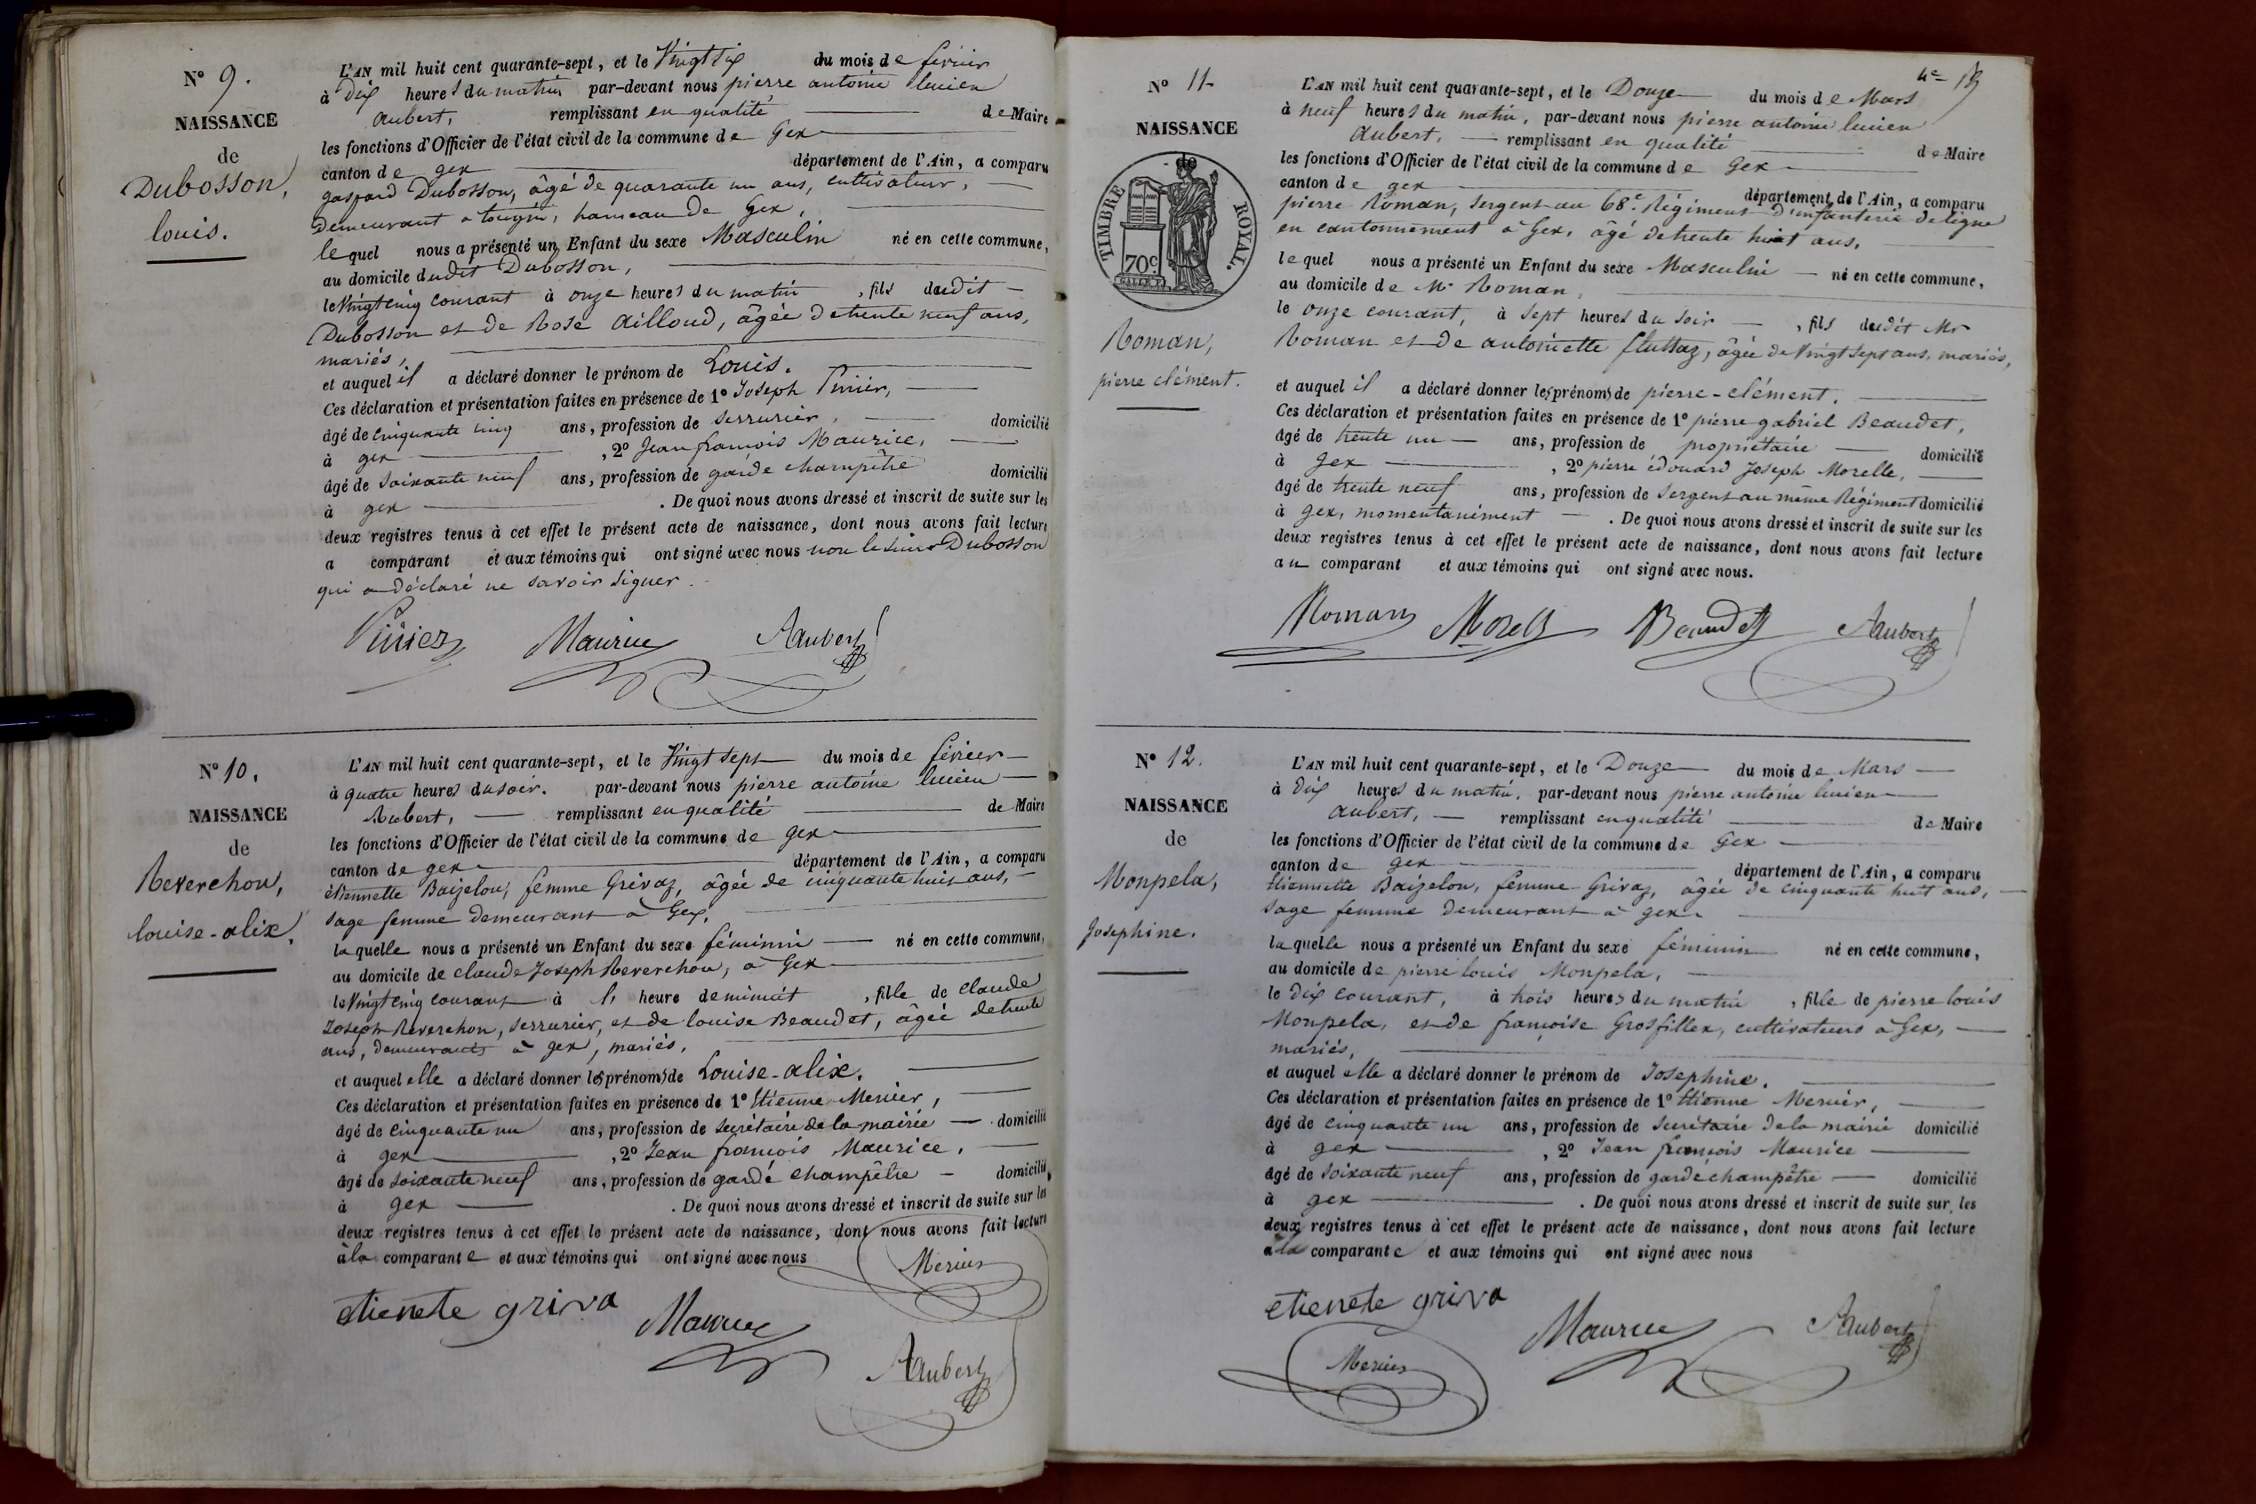 N° 9.
NAISSANCE
de
Dubosson,
louis.
L'AN mil huit cent quarante-sept, et le Vingt six du mois de février
à Dix heures du matin par-devant nous pierre antoine lucien
aubert, remplissant en qualité de Maire
les fonctions d'Officier de l'état civil de la commune de Gex
canton de gex département de l'Ain, a comparu
gaspard Dubosson, âgé de quarante un ans, cultivateur,
demeurant a tougin, hameau de Gex,
le quel nous a présenté un Enfant du sexe Masculin né en cette commune,
au domicile dudit Dubosson,
le Vingt cinq courant à onze heures du matin, fils dudit
Dubosson et de Rose Ailloud, âgée de trente neuf ans,
mariés,
et auquel il a déclaré donner le prénom de Louis.
Ces déclaration et présentation faites en présence de 1° Joseph
âgé de cinquante cinq ans, profession de serrurier, domicilié
à gex, 2° Jean françois Maurice,
âgé de soixante neuf ans, profession de garde champêtre domicilié
à gex. De quoi nous avons dressé et inscrit de suite sur les
deux registres tenus à cet effet le présent acte de naissance, dont nous avons fait lecture
a comparant et aux témoins qui ont signé avec nous non le sieur Dubosson
qui a déclaré ne savoir signer.
Maurice Aubert
N° 10.
NAISSANCE
de
Reverchon,
louise-alix.
L'AN mil huit cent quarante-sept, et le Vingt sept du mois de février
à quatre heures du soir. par-devant nous pierre antoine lucien
Aubert, remplissant en qualité de Maire
les fonctions d'Officier de l'état civil de la commune de gex
canton de gex département de l'Ain, a comparu
étiennette Baizelon, femme Grivaz, âgée de cinquante huit ans,
sage femme demeurant à Gex,
la quelle nous a présenté un Enfant du sexe féminin né en cette commune,
au domicile de claude Joseph Reverchon, à Gex
le Vingt cinq courant à heure de minuit, fille de claude
Joseph Reverchon, serrurier, et de louise Beaudet, âgée de trente
ans, demeurants à gex, mariés,
et auquel elle a déclaré donner les prénoms de Louise-alix.
Ces déclaration et présentation faites en présence de 1° Etienne Mercier,
âgé de cinquante un ans, profession de secrétaire de la mairie domicilié
à gex, 2° Jean françois Maurice,
âgé de soixante neuf ans, profession de garde champêtre domicilié
à gex. De quoi nous avons dressé et inscrit de suite sur les
deux registres tenus à cet effet le présent acte de naissance, dont nous avons fait lecture
à la comparante et aux témoins qui ont signé avec nous
Mercier
etienete griva Maurice
Aubert
4e 19
N° 11
NAISSANCE
TIMBRE ROYAL.
70c
Roman,
pierre clément.
L'AN mil huit cent quarante-sept, et le Douze du mois de Mars
à neuf heures du matin, par-devant nous pierre antoine lucien
Aubert, remplissant en qualité de Maire
les fonctions d'Officier de l'état civil de la commune de Gex
canton de gex département de l'Ain, a comparu
pierre Roman, sergent au 68e Régiment d'infanterie de ligne
en cantonnement à Gex, âgé de trente huit ans,
le quel nous a présenté un Enfant du sexe Masculin né en cette commune,
au domicile de Mr Roman,
le onze courant, à sept heures du soir, fils dudit Mr
Roman et de antoinette fluttaz, âgée de Vingt sept ans, mariés,
et auquel il a déclaré donner les prénoms de pierre-clément.
Ces déclaration et présentation faites en présence de 1° pierre gabriel Beaudet,
âgé de trente un ans, profession de propriétaire domicilié
à gex, 2° pierre édouard Joseph Morelle,
âgé de trente neuf ans, profession de sergent au même Régiment domicilié
à gex, momentanément. De quoi nous avons dressé et inscrit de suite sur les
deux registres tenus à cet effet le présent acte de naissance, dont nous avons fait lecture
au comparant et aux témoins qui ont signé avec nous.
Roman Beaudet Aubert
N° 12.
NAISSANCE
de
Monpela,
Josephine.
L'AN mil huit cent quarante-sept, et le Douze du mois de Mars
à Dix heures du matin, par-devant nous pierre antoine lucien
Aubert, remplissant en qualité de Maire
les fonctions d'Officier de l'état civil de la commune de Gex
canton de gex département de l'Ain, a comparu
étiennette Baizelon, femme Grivaz, âgée de cinquante huit ans,
sage femme demeurant à gex
la quelle nous a présenté un Enfant du sexe féminin né en cette commune,
au domicile de pierre louis Monpela,
le dix courant, à trois heures du matin, fille de pierre louis
Monpela, et de françoise Grosfillex, cultivateurs à Gex,
mariés,
et auquel elle a déclaré donner le prénom de Josephine.
Ces déclaration et présentation faites en présence de 1° Etienne Mercier,
âgé de cinquante un ans, profession de secrétaire de la mairie domicilié
à gex, 2° Jean françois Maurice
âgé de soixante neuf ans, profession de garde champêtre domicilié
à gex. De quoi nous avons dressé et inscrit de suite sur les
deux registres tenus à cet effet le présent acte de naissance, dont nous avons fait lecture
à la comparante et aux témoins qui ont signé avec nous
etienete griva Maurice Aubert
Mercier